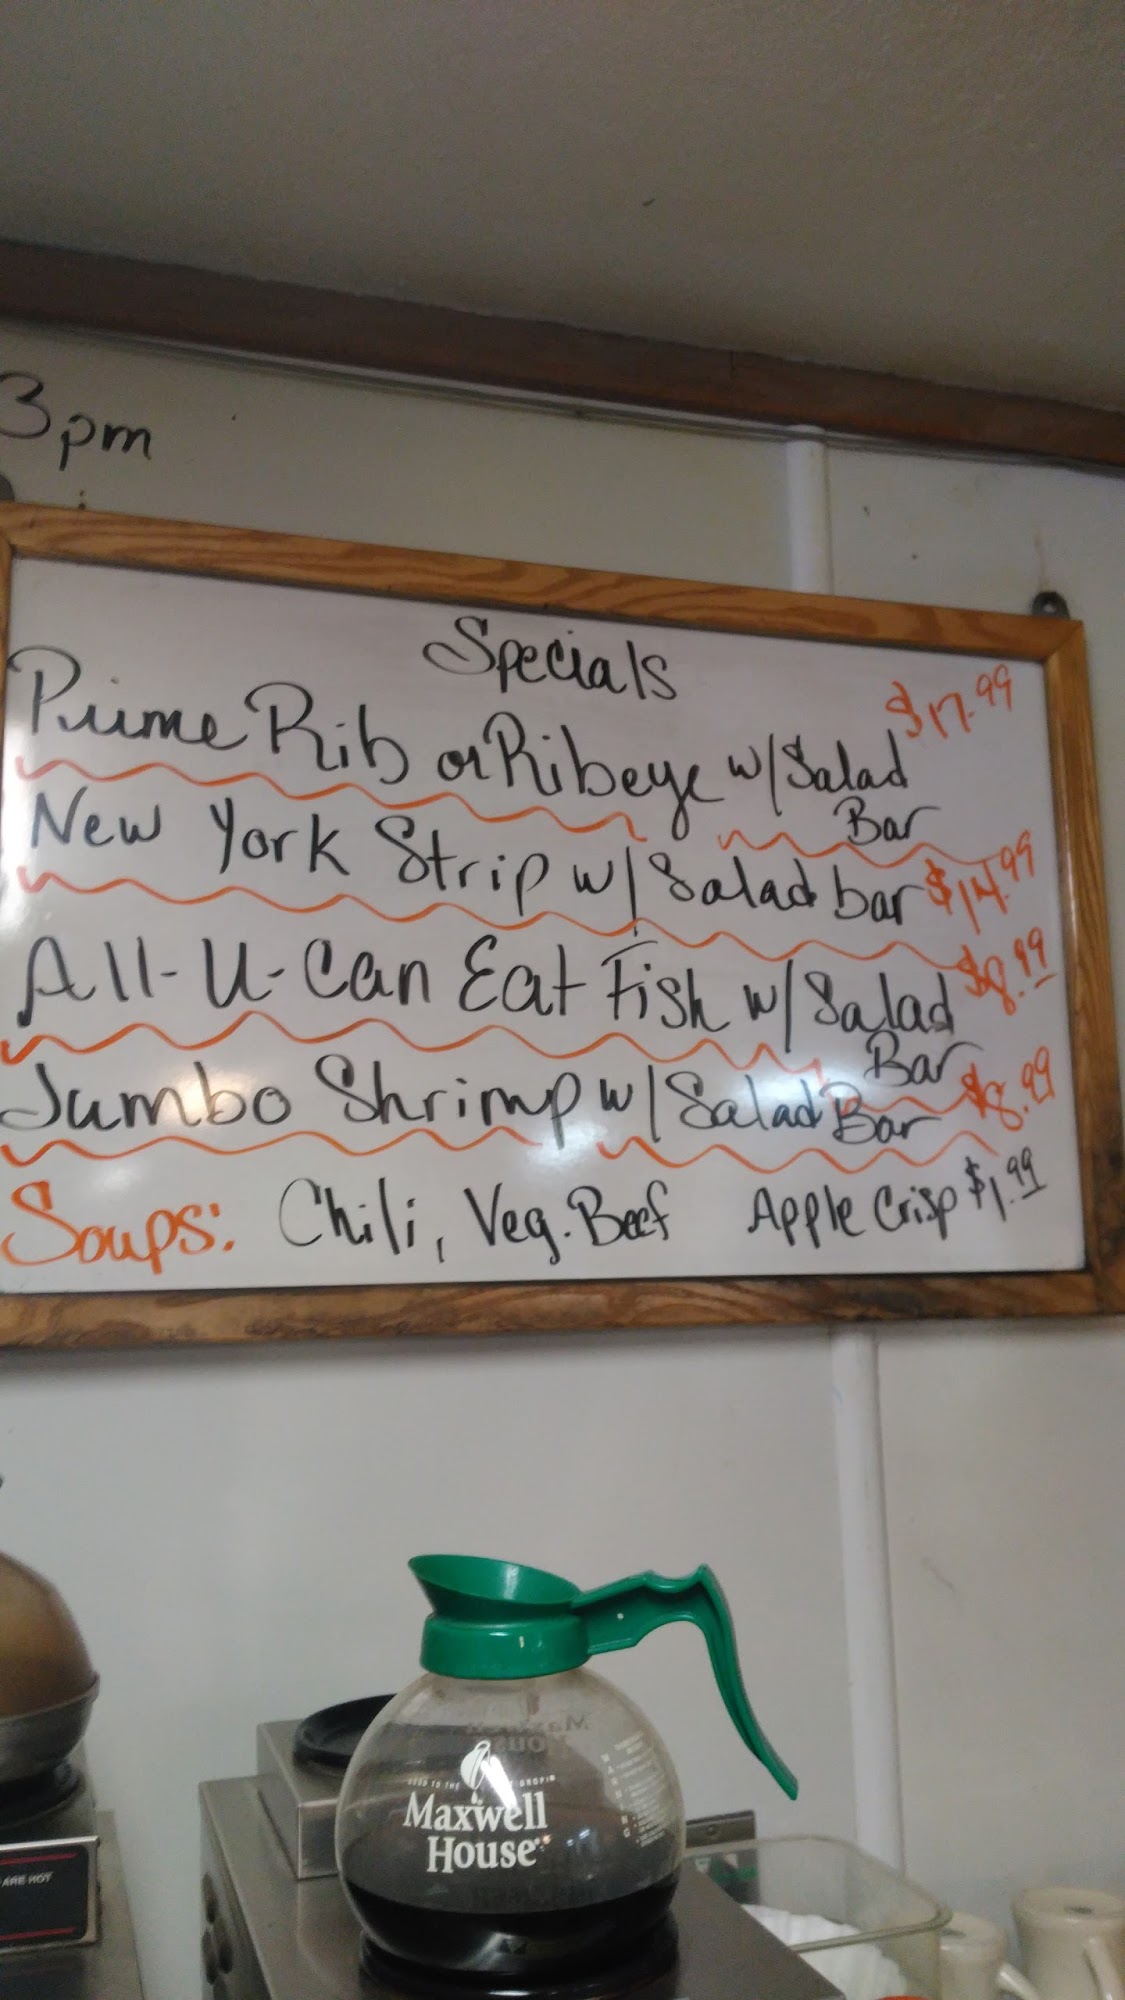 3pm
Specials
Prime Rib or Ribeye w/Salad Bar $17.99
New York Strip w/Salad bar $14.99
All-U-Can Eat Fish w/Salad Bar $8.99
Jumbo Shrimp w/Salad Bar $8.99
Soups: Chili, Veg. Beef Apple Crisp $1.99
Maxwell
House
ARE HOT